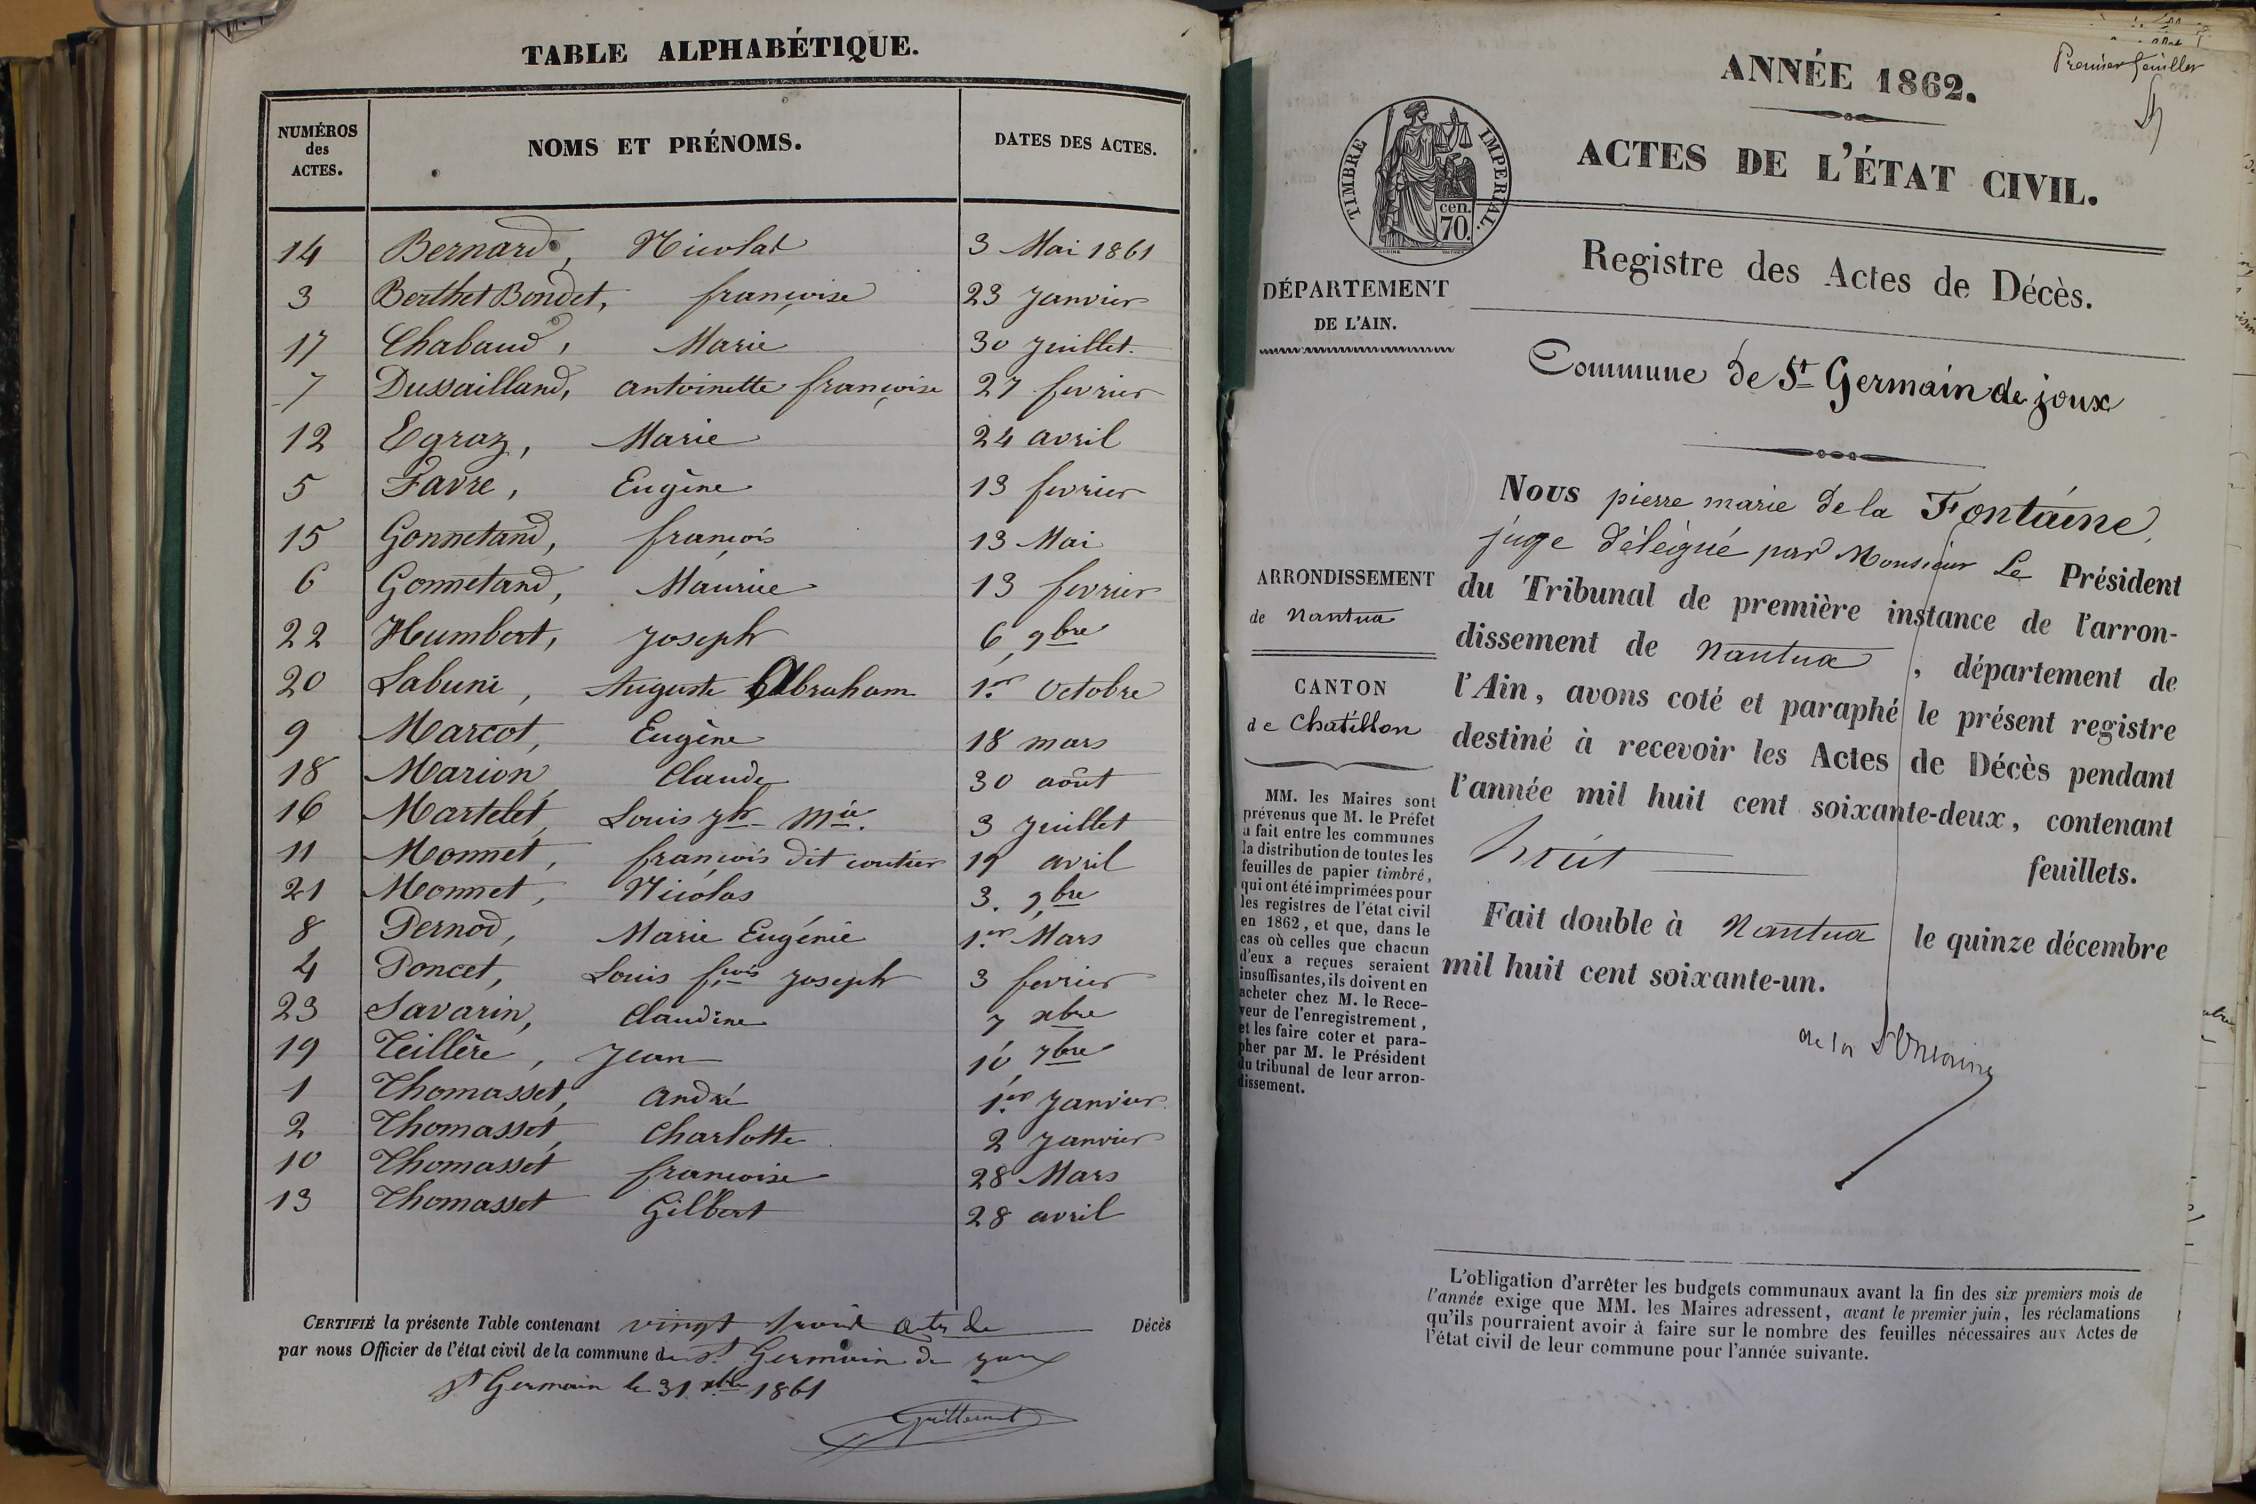 TABLE ALPHABÉTIQUE.
NUMÉROS des ACTES. NOMS ET PRÉNOMS. DATES DES ACTES.
14 Bernard, Nicolas 3 Mai 1861
3 Berthet Bondet, françoise 23 Janvier
17 Chabaud, Marie 30 Juillet.
7 Dussailland, antoinette françoise 27 fevrier
12 Egraz, Marie 24 avril
5 Favre, Eugène 13 fevrier
15 Gonnetand, françois 13 Mai
6 Gonnetand, Maurice 13 fevrier
22 Humbert, Joseph 6 9bre
20 Labuni, Auguste Abraham 1.er Octobre
9 Marcot, Eugène 18 mars
18 Marion, Claude 30 août
16 Martelet, Louis Jh Mie. 3 Juillet
11 Monnet, françois dit coutier 19 avril
21 Monnet, Nicolas 3. 9bre
8 Pernod, Marie Eugénie 1.er Mars
4 Poncet, Louis fçois Joseph 3 fevrier
23 Savarin, Claudine 7 xbre
19 Teillère, Jean 10 7bre
1 Thomasset, andré 1.er Janvier
2 Thomasset, Charlotte 2 Janvier
10 Thomasset françoise 28 Mars
13 Thomasset Gilbert 28 avril
CERTIFIÉ la présente Table contenant vingt trois actes de Décès
par nous Officier de l'état civil de la commune de St Germain de Joux
St Germain le 31 xbre 1861
Premier feuillet
ANNÉE 1862.
TIMBRE IMPERIAL.
cen.
70.
ACTES DE L'ÉTAT CIVIL.
Registre des Actes de Décès.
DÉPARTEMENT
DE L'AIN.
Commune de St Germain de joux
ARRONDISSEMENT
de Nantua
CANTON
de Chatillon
MM. les Maires sont
prévenus que M. le Préfet
a fait entre les communes
la distribution de toutes les
feuilles de papier timbré,
qui ont été imprimées pour
les registres de l'état civil
en 1862, et que, dans le
cas où celles que chacun
d'eux a reçues seraient
insuffisantes, ils doivent en
acheter chez M. le Rece-
veur de l'enregistrement,
et les faire coter et para-
pher par M. le Président
du tribunal de leur arron-
dissement.
Nous pierre marie de la Fontaine,
juge délégué par Monsieur Le Président
du Tribunal de première instance de l'arron-
dissement de Nantua, département de
l'Ain, avons coté et paraphé le présent registre
destiné à recevoir les Actes de Décès pendant
l'année mil huit cent soixante-deux, contenant
huit feuillets.
Fait double à Nantua le quinze décembre
mil huit cent soixante-un.
de la Fontaine
L'obligation d'arrêter les budgets communaux avant la fin des six premiers mois de
l'année exige que MM. les Maires adressent, avant le premier juin, les réclamations
qu'ils pourraient avoir à faire sur le nombre des feuilles nécessaires aux Actes de
l'état civil de leur commune pour l'année suivante.